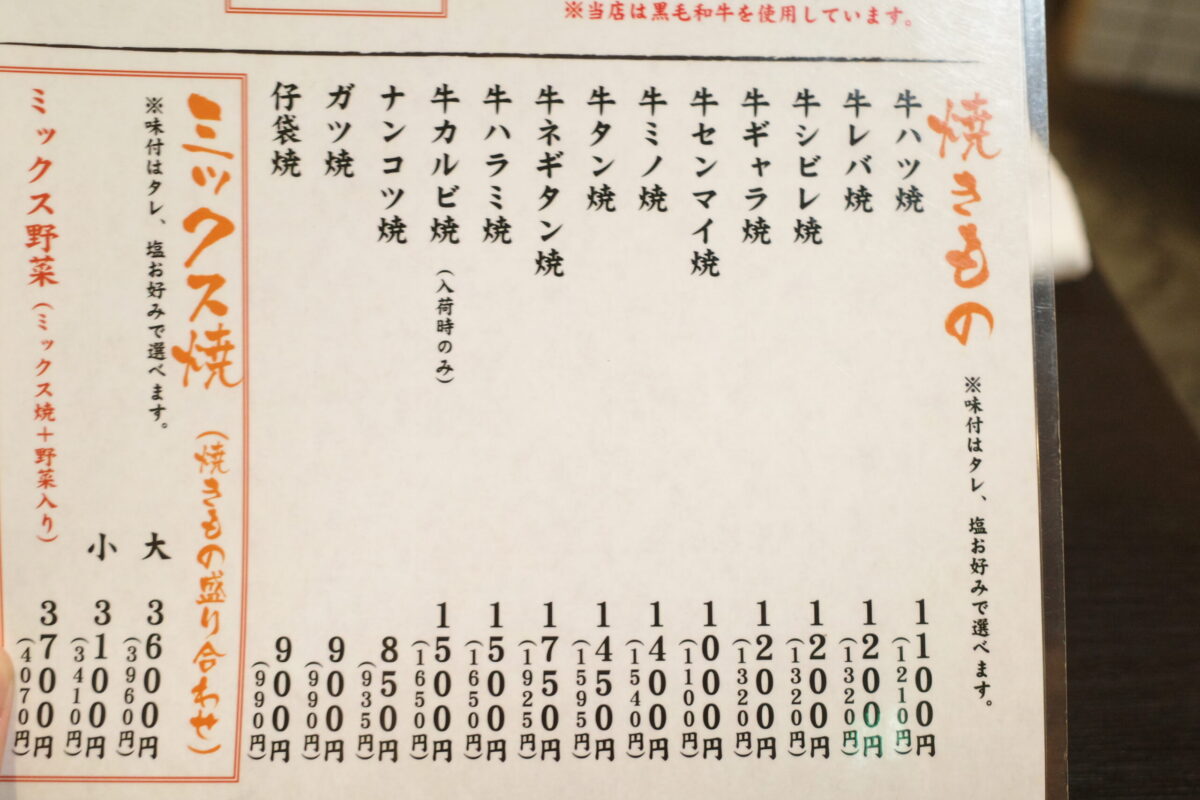 ※当店は黒毛和牛を使用しています。
焼きもの ※味付はタレ、塩お好みで選べます。
牛ハツ焼 1100円(1210円)
牛レバ焼 1200円(1320円)
牛シビレ焼 1200円(1320円)
牛ギャラ焼 1200円(1320円)
牛センマイ焼 1000円(1100円)
牛ミノ焼 1400円(1540円)
牛タン焼 1450円(1595円)
牛ネギタン焼 1750円(1925円)
牛ハラミ焼 1500円(1650円)
牛カルビ焼(入荷時のみ) 1500円(1650円)
ナンコツ焼 850円(935円)
ガツ焼 900円(990円)
仔袋焼 900円(990円)
ミックス焼(焼きもの盛り合わせ)
※味付はタレ、塩お好みで選べます。
大 3600円(3960円)
小 3100円(3410円)
ミックス野菜(ミックス焼+野菜入り) 3700円(4070円)